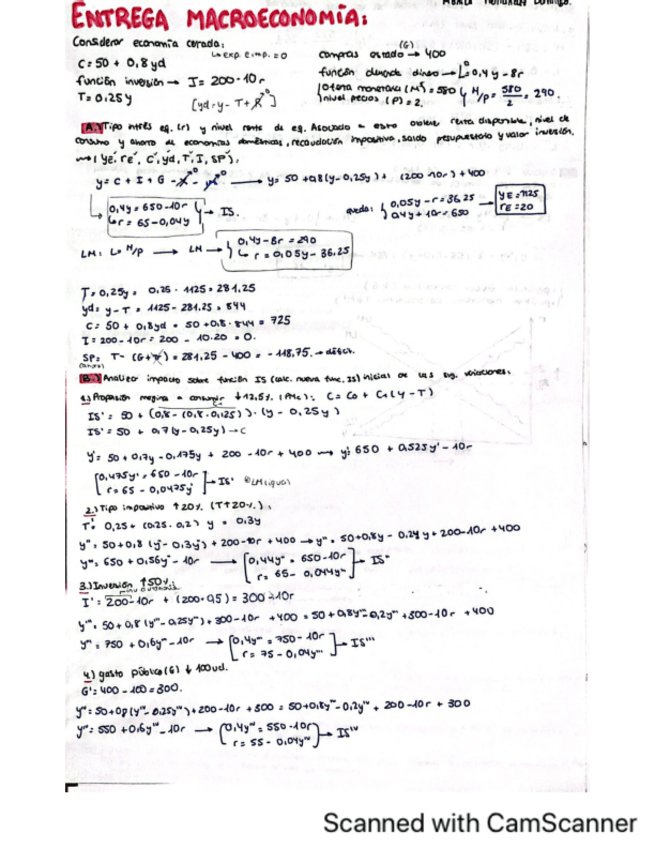 ENTREGA MACROECONOMÍA:
Considerar economía cerrada:
C = 50 + 0,8 yd
función inversión → I = 200 - 10r
T = 0,25 y
[yd = y - T + TR⁰]
↳ exp. e imp. = 0
compras estado (G) → 400
función demanda dinero → L = 0,4 y - 8r
oferta monetaria (Mˢ) = 580
nivel precios (P) = 2.
M/P = 580/2 = 290.
A.) Tipo interés eq. (r) y nivel renta de eq. Asociado a esto renta disponible, nivel de
consumo y ahorro de economías domésticas, recaudación impositiva, saldo presupuestario y valor inversión.
(YE, rE, C, yd, T, I, SP).
y = C + I + G → y = 50 + 0,8(y - 0,25y) + (200 - 10r) + 400
0,4y = 650 - 10r
r = 65 - 0,04y
→ IS.
queda: 0,05y - r = 36.25
0,4y + 10r = 650
→ YE = 1125
rE = 20
LM: L = M/P → LM → 0,4y - 8r = 290
r = 0,05y - 36.25
T = 0,25y = 0,25 · 1125 = 281.25
yd = y - T = 1125 - 281.25 = 844
C = 50 + 0,8yd = 50 + 0,8 · 844 = 725
I = 200 - 10r = 200 - 10·20 = 0.
SP = T - (G + TR) = 281.25 - 400 = -118,75. → déficit.
(ahorro)
B.) Analizar impacto sobre función IS (calc. nueva func. IS) iniciales de las sig. variaciones.
1.) Propensión marginal a consumir ↓12,5% (PMC): C = C0 + C1(Y - T)
IS' = 50 + (0,8 - (0,8·0,125)) · (y - 0,25y)
IS' = 50 + 0,7(y - 0,25y) → C
y' = 50 + 0,7y - 0,175y + 200 - 10r + 400 → y' = 650 + 0,525y' - 10r
0,475y' = 650 - 10r
r = 65 - 0,0475y'
→ IS' LM igual
2.) Tipo impositivo ↑20% (T↑20%):
T' = 0,25 + (0.25·0,2) y = 0.3y
y'' = 50 + 0,8 (y - 0.3y) + 200 - 10r + 400 → y'' = 50 + 0,8y - 0,24y + 200 - 10r + 400
y'' = 650 + 0,56y'' - 10r → 0,44y'' = 650 - 10r
r = 65 - 0,044y''
→ IS''
3.) Inversión ↑50%
I' = 200 - 10r + (200·0,5) = 300 - 10r
y''' = 50 + 0,8 (y''' - 0,25y''') + 300 - 10r + 400 = 50 + 0,8y''' - 0,2y''' + 300 - 10r + 400
y''' = 750 + 0,6y''' - 10r → 0,4y''' = 750 - 10r
r = 75 - 0,04y'''
→ IS'''
4.) gasto público (G) ↓ 100ud.
G' = 400 - 100 = 300.
y'''' = 50 + 0,8 (y'''' - 0.25y'''') + 200 - 10r + 300 = 50 + 0,8y'''' - 0,2y'''' + 200 - 10r + 300
y'''' = 550 + 0,6y'''' - 10r → 0,4y'''' = 550 - 10r
r = 55 - 0,04y''''
→ ISᴵⱽ
Scanned with CamScanner